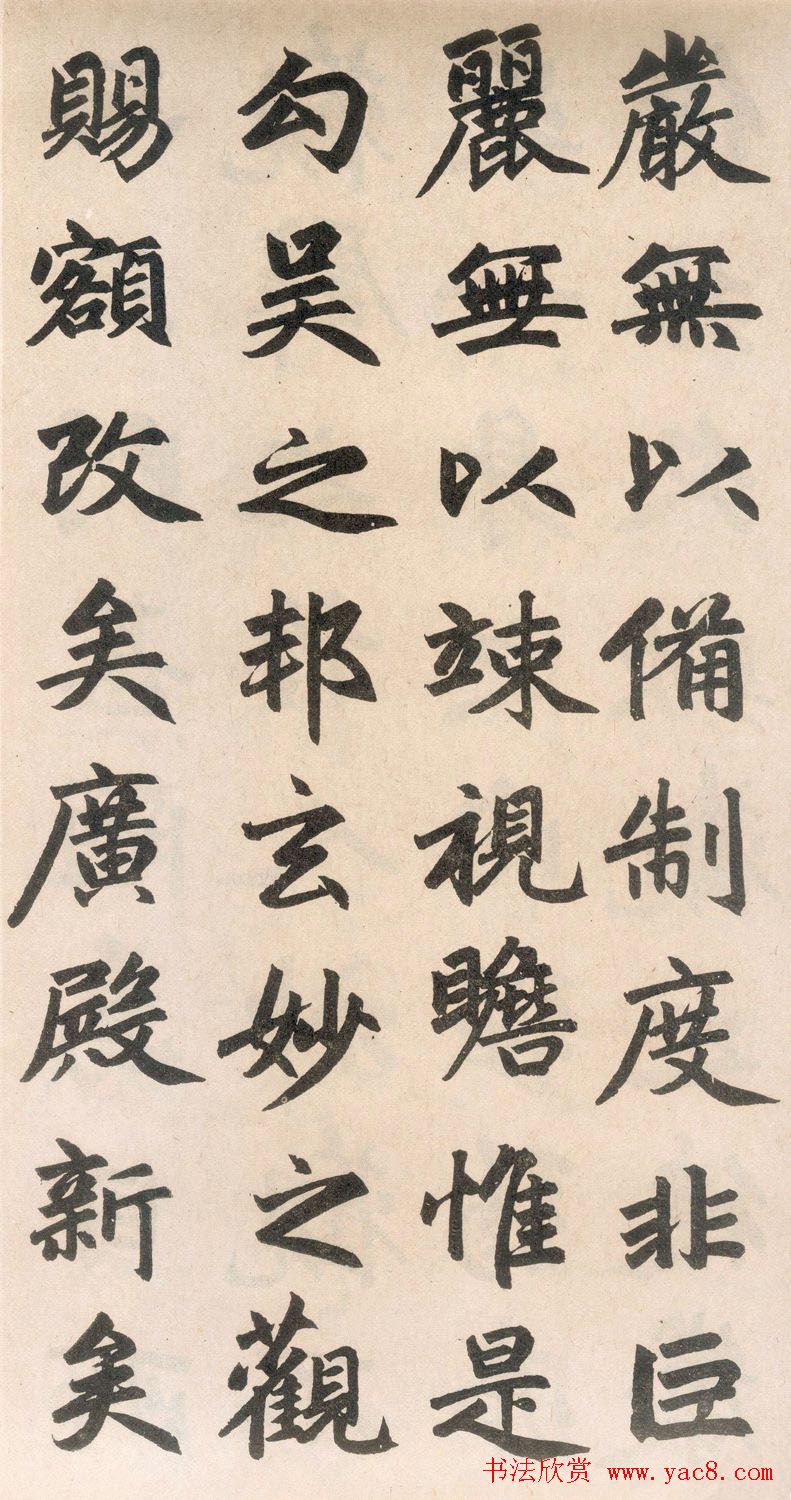 嚴無以備制度非巨
麗無以竦視瞻惟是
勾吴之邦玄妙之觀
賜額改矣廣殿新矣
书法欣赏 www.yac8.com